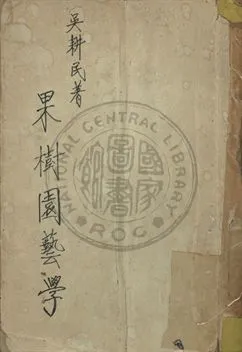 吳耕民著
果樹園藝學
NATIONAL CENTRAL LIBRARY
國家圖書館
ROC